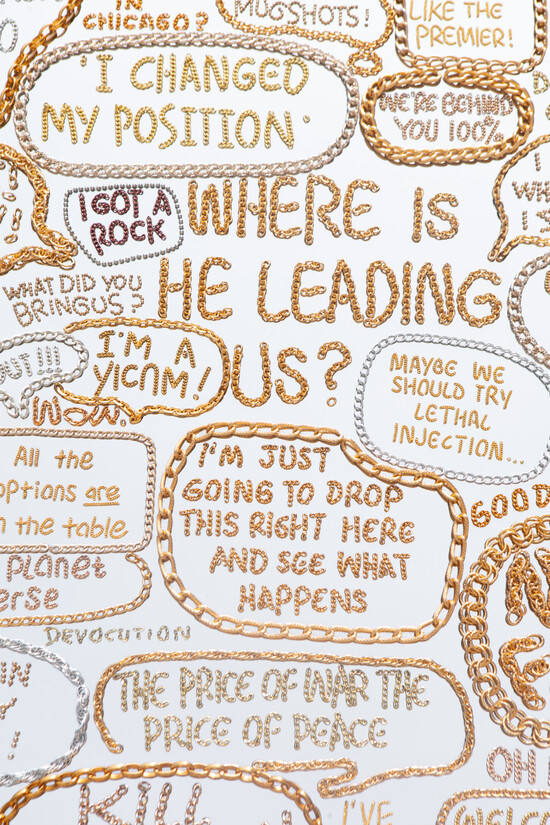 IN
CHICAGO?
MUGSHOTS!
LIKE THE
PREMIER!
'I CHANGED
MY POSITION'
WE'RE BEHIND
YOU 100%
I GOT A
ROCK
WHERE IS
HE LEADING
US?
WHAT DID YOU
BRING US?
OUT!!!
I'M A
VICTIM!
WOW.
MAYBE WE
SHOULD TRY
LETHAL
INJECTION...
All the
options are
on the table
I'M JUST
GOING TO DROP
THIS RIGHT HERE
AND SEE WHAT
HAPPENS
GOOD
planet
erse
DEVOCUTION
THE PRICE OF WAR THE
PRICE OF PEACE
OH
KILL
I'VE